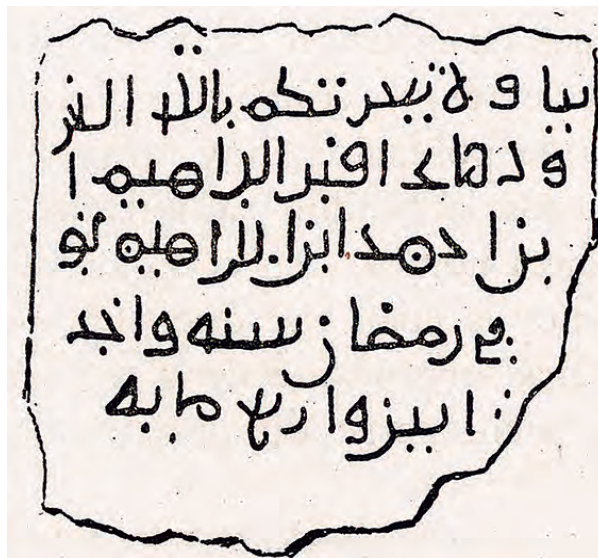 نيا ولا يغرنكم بالله الغر
ور هاذا قبر ابراهيم ا
بن احمد ابن ابراهيم تو
في رمضان سنه واحد
انين واربع مايه